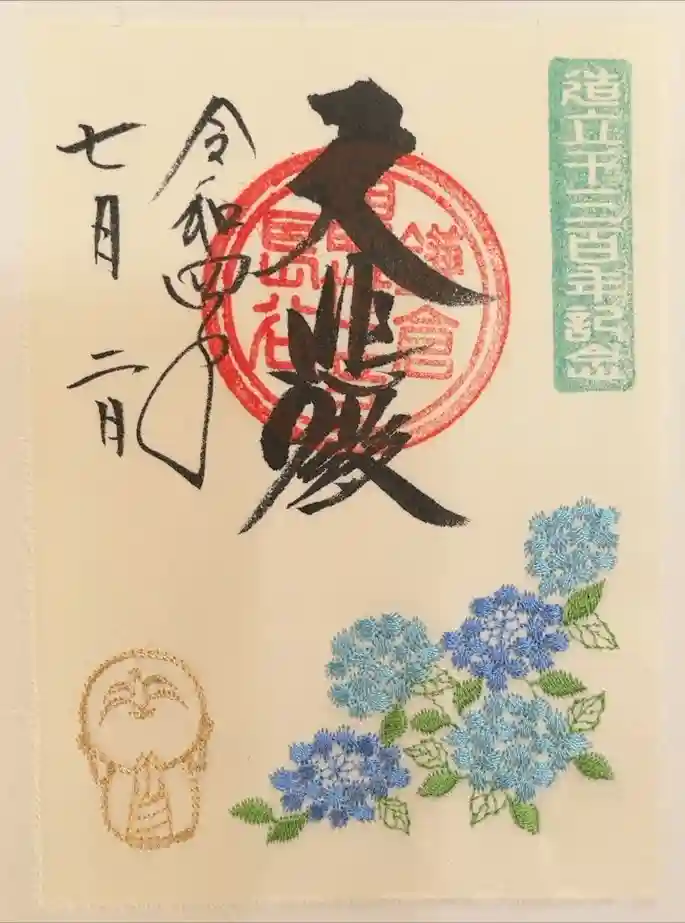 造立千三百年記念
大悲殿
鎌倉
長谷
令和四年
七月二日